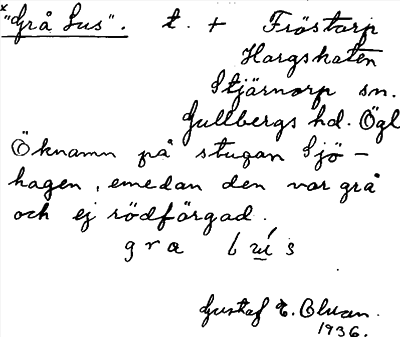 x "Grå Lus". t. + Fröstorp
Hargskaten
Stjärnorp sn.
Gullbergs hd. Ögl
Öknamn på stugan Sjö-
hagen, emedan den var grå
och ej rödfärgad.
gra lús
Gustaf E.
1936.